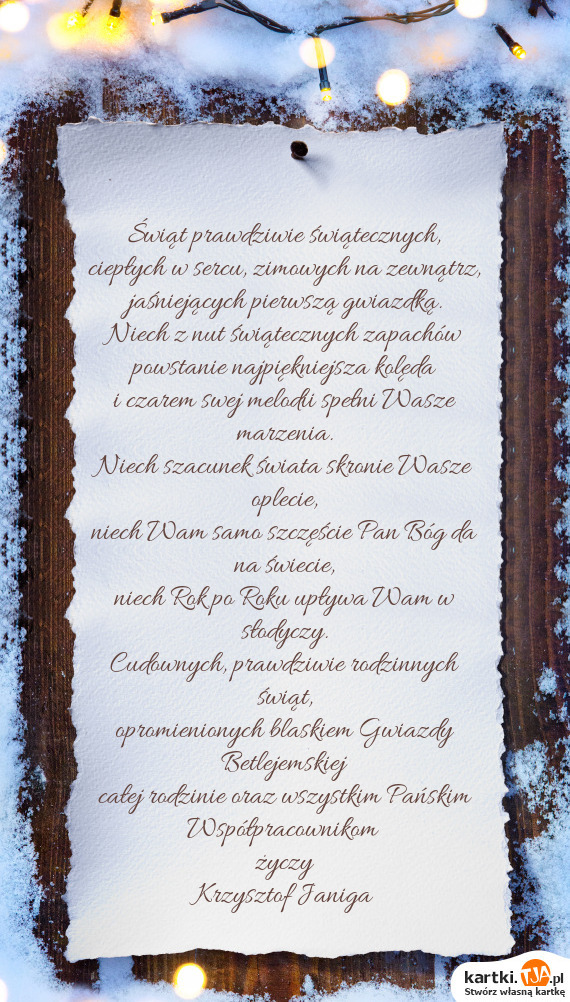 Świąt prawdziwie świątecznych,
ciepłych w sercu, zimowych na zewnątrz,
jaśniejących pierwszą gwiazdką.
Niech z nut świątecznych zapachów
powstanie najpiękniejsza kolęda
i czarem swej melodii spełni Wasze
marzenia.
Niech szacunek świata skronie Wasze
oplecie,
niech Wam samo szczęście Pan Bóg da
na świecie,
niech Rok po Roku upływa Wam w
słodyczy.
Cudownych, prawdziwie rodzinnych
świąt,
opromienionych blaskiem Gwiazdy
Betlejemskiej
całej rodzinie oraz wszystkim Pańskim
Współpracownikom
życzy
Krzysztof Janiga
kartki.TJA.pl
Stwórz własną kartkę